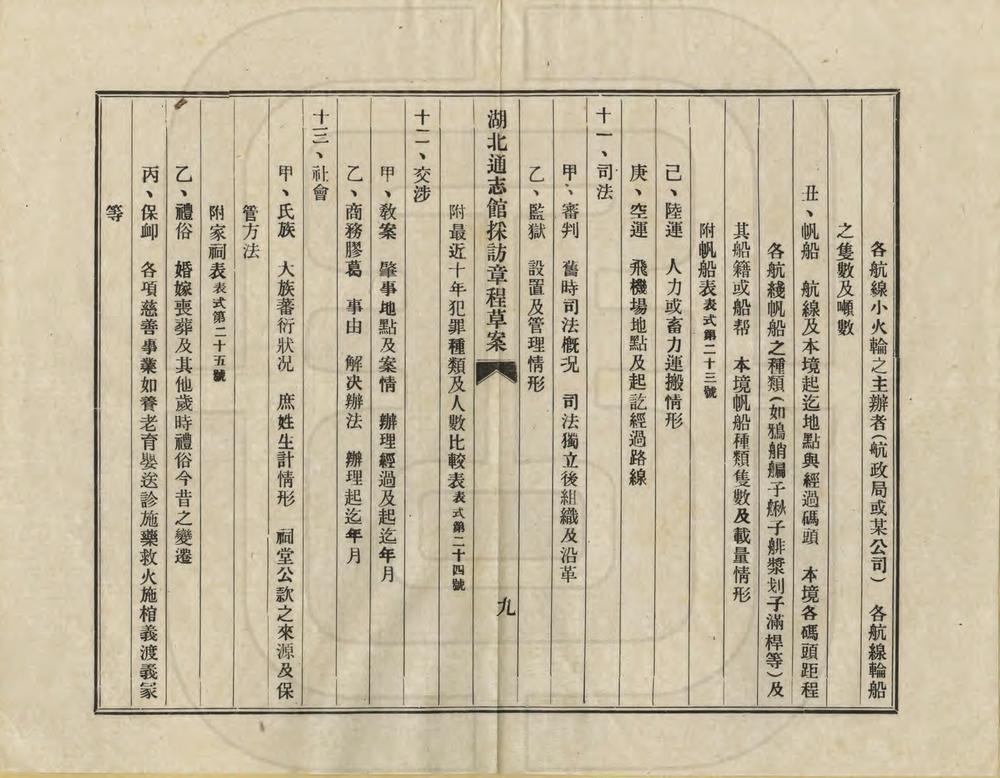 各航線小火輪之主辦者（航政局或某公司）　各航線輪船
之隻數及噸數
丑、帆船　航線及本境起迄地點與經過碼頭　本境各碼頭距程
各航綫帆船之種類（如鴉艄艑子鰍子艑槳划子滿桿等）及
其船籍或船帮　本境帆船種類隻數及載量情形
附帆船表表式第二十三號
己、陸運　人力或畜力運搬情形
庚、空運　飛機場地點及起訖經過路線
十一、司法
甲、審判　舊時司法概况　司法獨立後組織及沿革
乙、監獄　設置及管理情形
湖北通志館採訪章程草案
九
附最近十年犯罪種類及人數比較表表式第二十四號
十二、交涉
甲、敎案　肇事地點及案情　辦理經過及起迄年月
乙、商務膠葛　事由　解决辦法　辦理起迄年月
十三、社會
甲、氏族　大族蕃衍狀况　庶姓生計情形　祠堂公款之來源及保
管方法
附家祠表表式第二十五號
乙、禮俗　婚嫁喪葬及其他歲時禮俗今昔之變遷
丙、保卹　各項慈善事業如養老育嬰送診施藥救火施棺義渡義冢
等